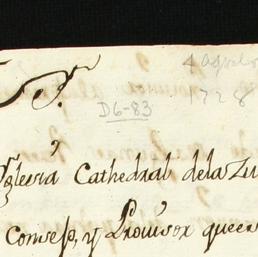 4 Agosto
1728
D6-83
Yglesia Cathedral dela Ziu
Consejo, y Provisor quees